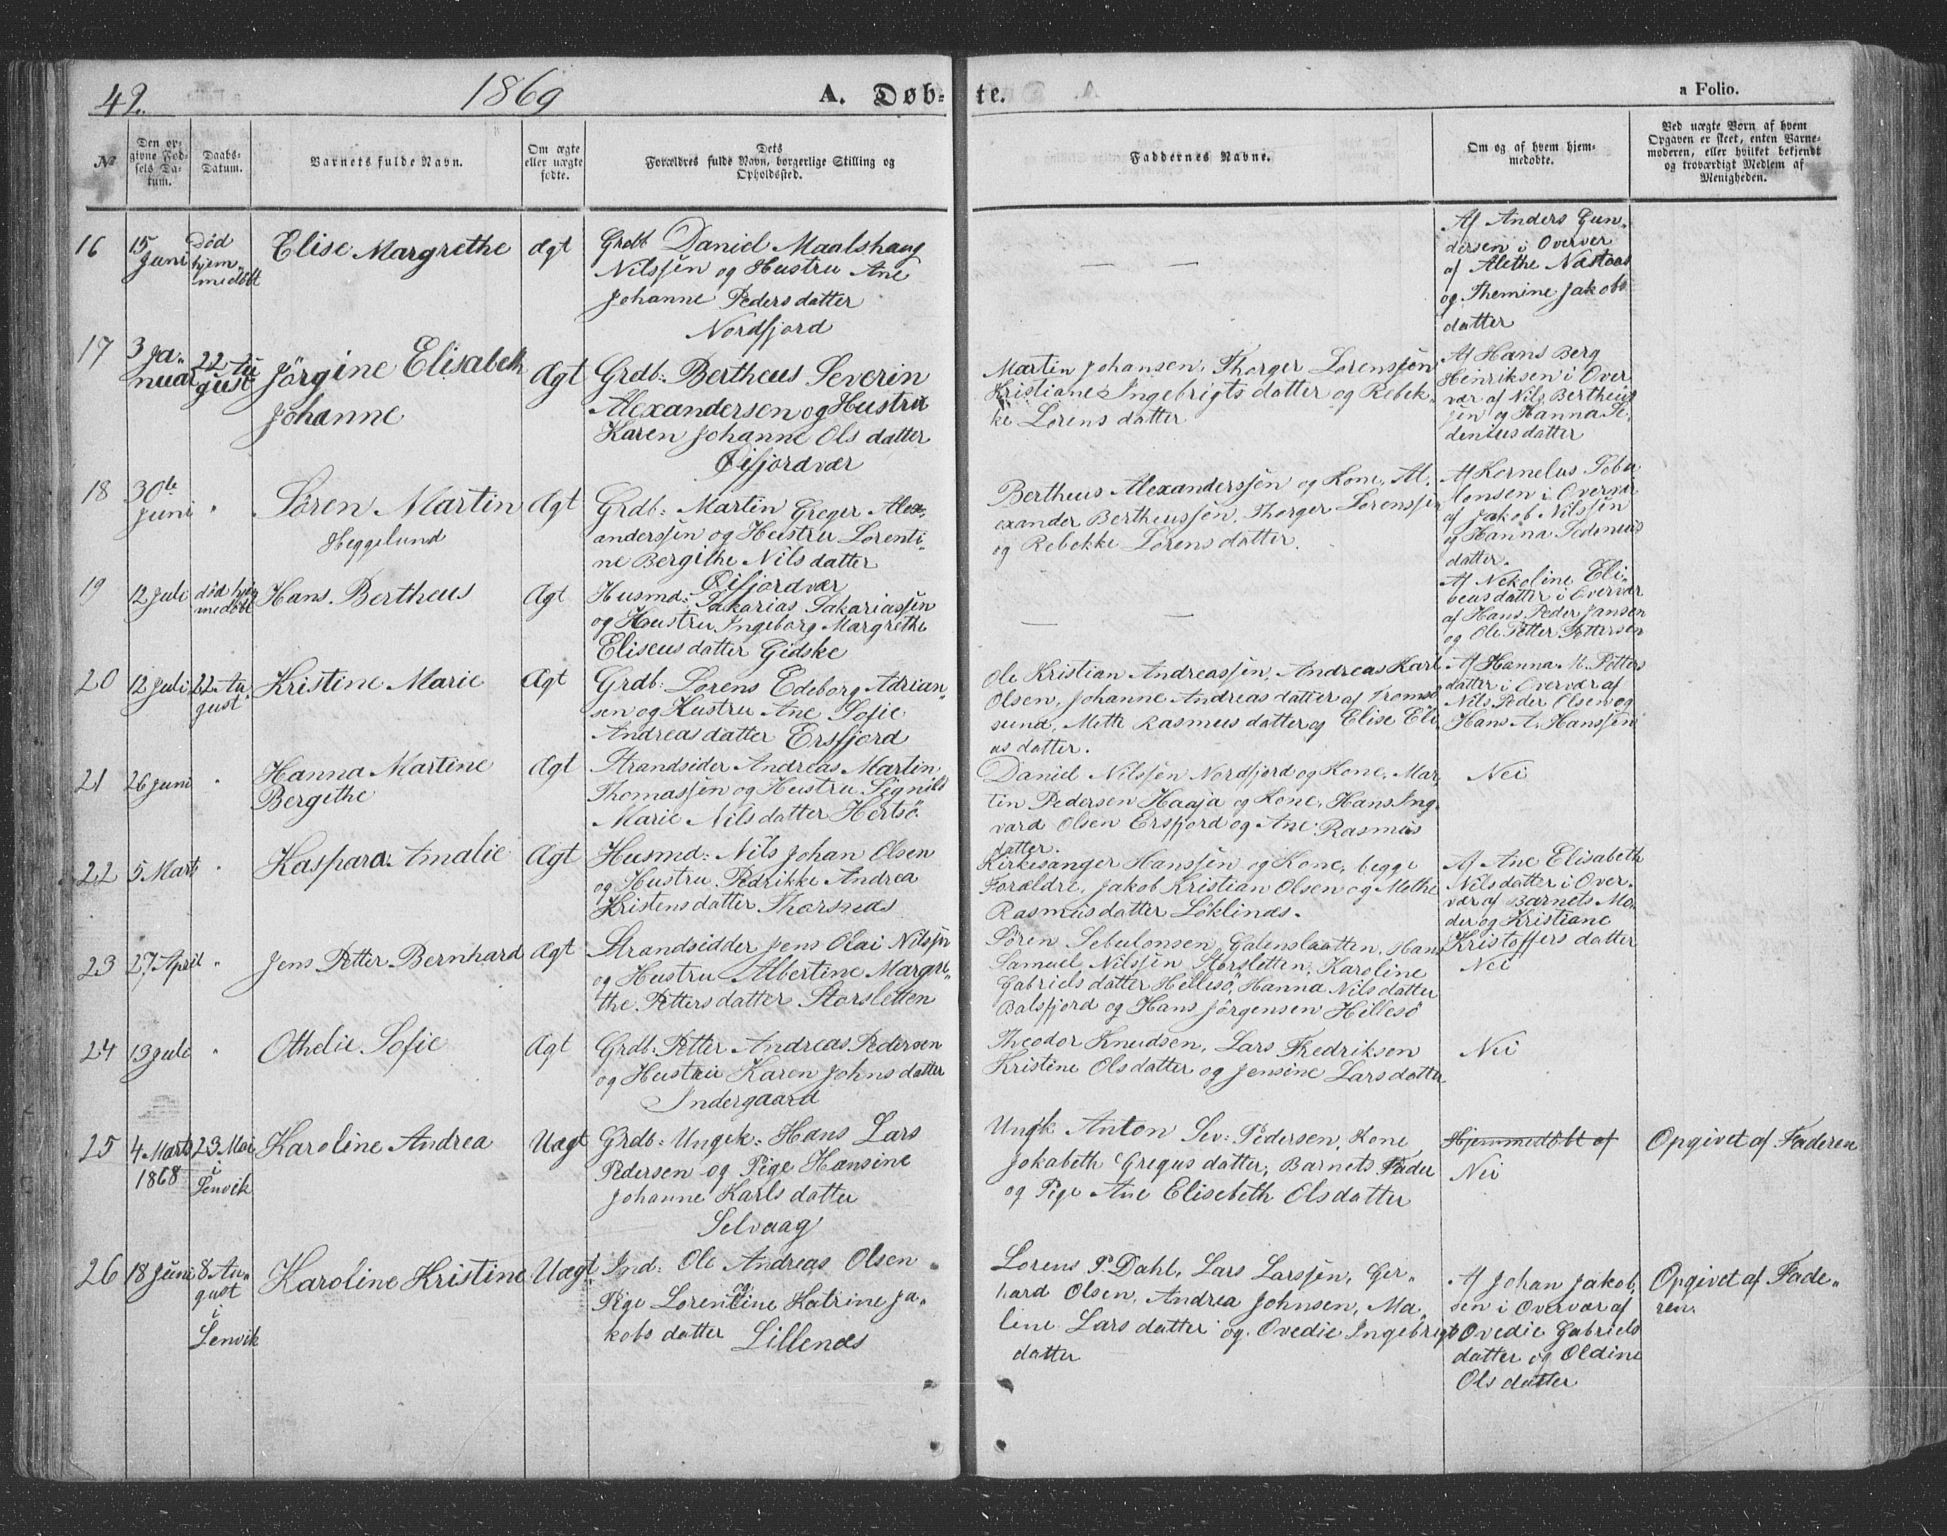 42.
1869
A. Døb-
te.
a Folio.
№
Den op-
givne Fød-
sels Da-
tum.
Daabs-
Datum.
Barnets fulde Navn.
Om ægte
eller uægte
fødte.
Dets
Forældres fulde Navn, borgerlige Stilling og
Opholdssted.
Faddernes Navne.
Om og af hvem hjem-
medøbte.
Ved uægte Børn af hvem
Opgaven er skeet, enten Barne-
moderen, eller hvilket bekjendt
og troværdigt Medlem af
Menigheden.
16
15
Juni
Død
hjem-
medøbt
Elise Margrethe
Ægt
Grdb Daniel Maalshaug
Nilssen og Hustru Ane
Johanne Pedersdatter
Nordfjord
— —
Af Anders Gun-
dersen i Overvær
af Alethe Nastaas
og Themine Jakobs
datter
17
3 Ja-
nuar
22 Au
gust
Jörgine Elisabeth
Johanne
Ægt
Grdb: Bertheus Severin
Alexandersen og Hustru
Karen Johanne Olsdatter
Øifjordvær
Martin Johansen, Thorger Lorenssen
Kristiane Ingebrigtsdatter og Rebek-
ke Lorensdatter
Af Hans Berg
Henriksen i Over
vær af Nils Bertheus
sen og Hanna Se-
denius datter
18
30te
Juni
"
Sören Martin
Heggelund
Ægt
Grdb: Martin Greger Alex-
anderssen og Hustru Lorenti-
ne Bergithe Nilsdatter
Øifjordvær
Bertheus Alexanderssen og Kone, Al-
exander Bertheussen, Thorger Lorenssen
og Rebekke Lorensdatter.
Af Kornelus Toba
lonsen i Overvær
af Jakob Nilssen
og Hanna Sedenius
datter.
19
12 Juli
død hjem
medøbt
Hans Bertheus
Ægt
Husmd: Sakarias Sakariassen
og Hustru Ingeborg Margrethe
Eliseusdatter Gidske
— —
Af Nekoline Eli-
beusdatter i Overvær
af Hans Peder Jansen
og Ole Petter Pettersen
20
12 Juli
22 Au-
gust
Kristine Marie
Ægt
Grdb: Lorens Edeborg Adrian-
sen og Hustru Ane Sofie
Andreasdatter Ersfjord
Ole Kristian Andreassen, Andreas Karl
Olsen, Johanne Andreasdatter af Tromsö
sund, Meth Rasmusdatter og Elise Eli
as datter.
Af Hanna M. Petters
datter i Overvær af
Nils Peder Olsen og
Hans A. Hanssen
21
26 Juni
"
Hanna Martine
Bergithe
Ægt
Strandsider Andreas Martin
Thomassen og Hustru Signild
Marie Nilsdatter Hertsö
Daniel Nilssen Nordfjord og Kone, Mar-
tin Pedersen Haaja og Kone, Hans Ing-
vard Olsen Ersfjord og Ane Rasmus
datter.
Nei
22
5 Marts
"
Kaspara Amalie
Ægt
Husmd: Nils Johan Olsen
og Hustru Pedrikke Andrea
Kristensdatter Thorsnæs
Kirkesanger Hanssen og Kone, begge
Forældre, Jakob Kristian Olsen og Methe
Rasmusdatter Löklinæs.
Af Ane Elisabeth
Nilsdatter i Over-
vær af Barnets Mo-
der og Kristiane
Kristoffersdatter
23
27 April
"
Jens Petter Bernhard
Ægt
Strandsidder Jens Olai Nilssen
og Hustru Albertine Margre-
the Pettersdatter Storsletten
Sören Sebulonsen Galenslatten, Hans
Samuel Nilssen Storsletten, Karoline
Gabrielsdatter Hillesö, Hanna Nilsdatter
Balsfjord og Hans Jörgensen Hillesö
Nei
24
13 Juli
"
Othelie Sofie
Ægt
Grdb: Petter Andreas Pedersen
og Hustru Karen Johnsdatter
Indergaard
Theodor Knudsen, Lars Fredriksen
Kristine Olsdatter og Jensine Larsdatter
Nei
25
4 Marts
1868
23 Mai
i
Lenvik
Karoline Andrea
Uægt
Grdb: Ungk: Hans Lars
Pedersen og Pige Hansine
Johanne Karlsdatter
Selvaag
Ungk Anton Sev. Pedersen, Kone
Jokabeth Gregusdatter, Barnets Fader
og Pige Ane Elisebeth Olsdatter
Hjemmedöbt af
Nei
Opgivet af Faderen
26
18 Juni
8 Au-
gust
i
Lenvik
Karoline Kristine
Uægt
Ind: Ole Andreas Olsen
og
Pige Lorentine Katrine Ja-
kobsdatter Lillenæs
Lorens P. Dahl, Lars Larssen, Ger-
hard Olsen, Andrea Johnsen, Ma-
line Larsdatter og Ovedie Ingebrigts
datter
Af Johan Jakob-
sen i Overvær af
Ovedie Gabriels
datter og Oldine
Olsdatter
Opgivet af Fade-
ren